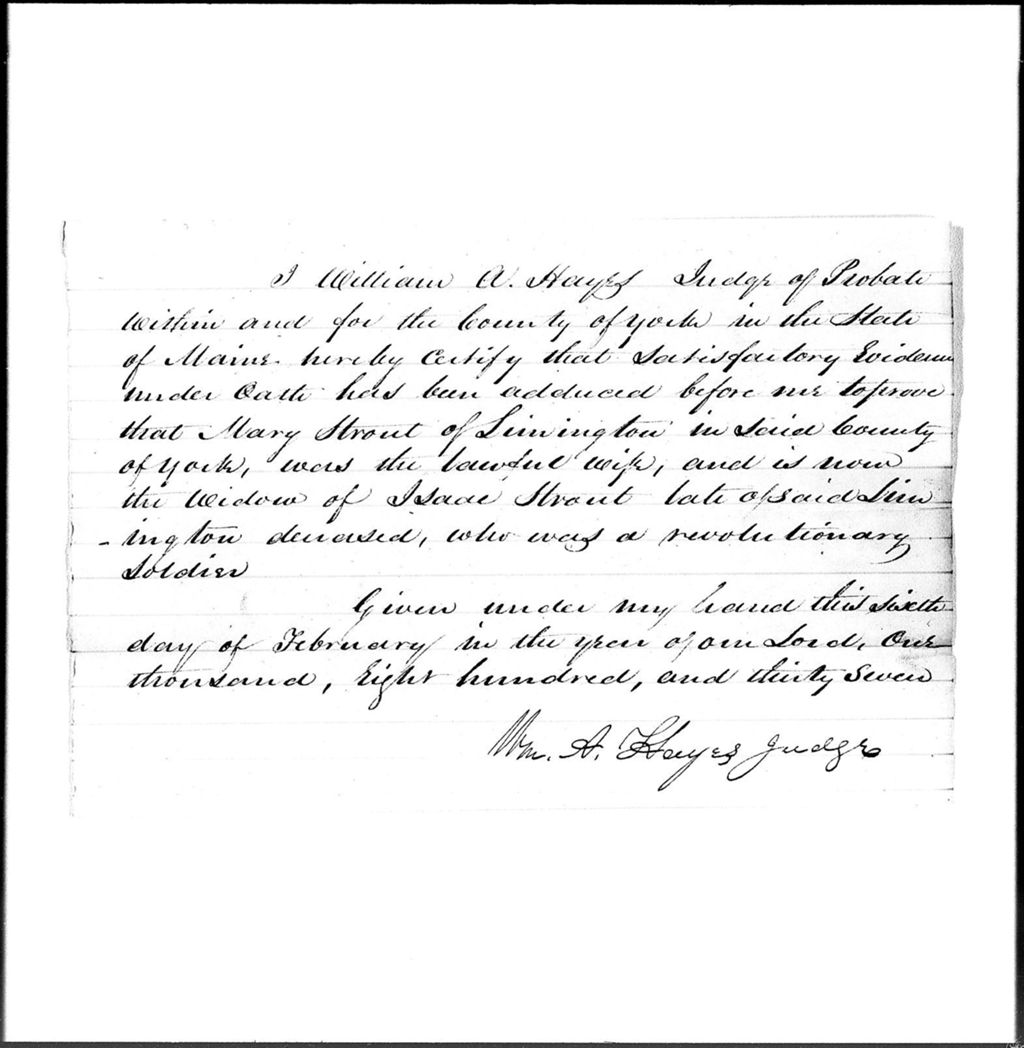 I William A. Hayes Judge of Probate
Within and for the County of York in the State
of Maine hereby Certify that Satisfactory Evidence
under Oath has been adduced before me to prove
that Mary Strout of Limington in Said County
of York, was the lawful wife, and is now
the Widow of Isaac Strout late of said Lim
- ington deceased, who was a revolutionary
Soldier
Given under my hand this Sixth
day of February in the year of our Lord, One
thousand, Eight hundred, and thirty Seven
Wm. A. Hayes Judge